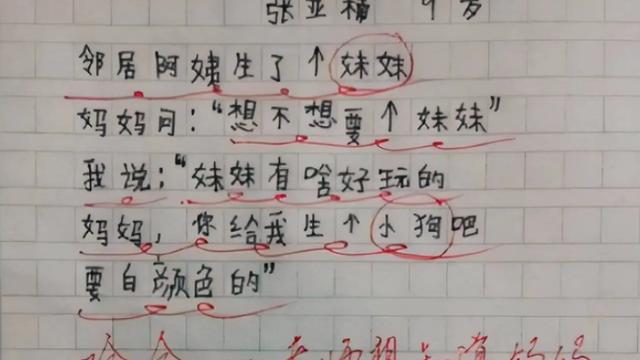 9岁
邻居阿姨生了个妹妹
妈妈问：“想不想要个妹妹”
我说：“妹妹有啥好玩的
妈妈，你给我生个小狗吧
要白颜色的”